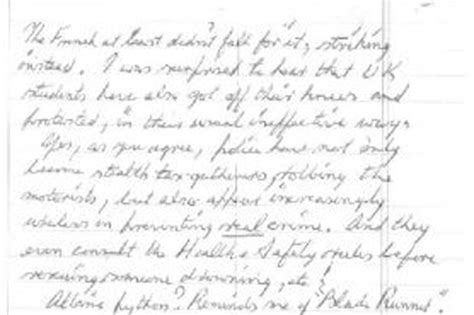 The French at least didn't fall for it, striking
instead. I was surprised to hear that U.K.
students have also got off their knees and
protested, in their usual ineffective way.
Yes, as you agree, police have not only
become stealth tax-gatherers, robbing the
motorists, but also appear increasingly
useless in preventing real crime. And they
even consult the Health & Safety rules before
rescuing someone drowning, etc!
Albino python? Reminds me of "Blade Runner".